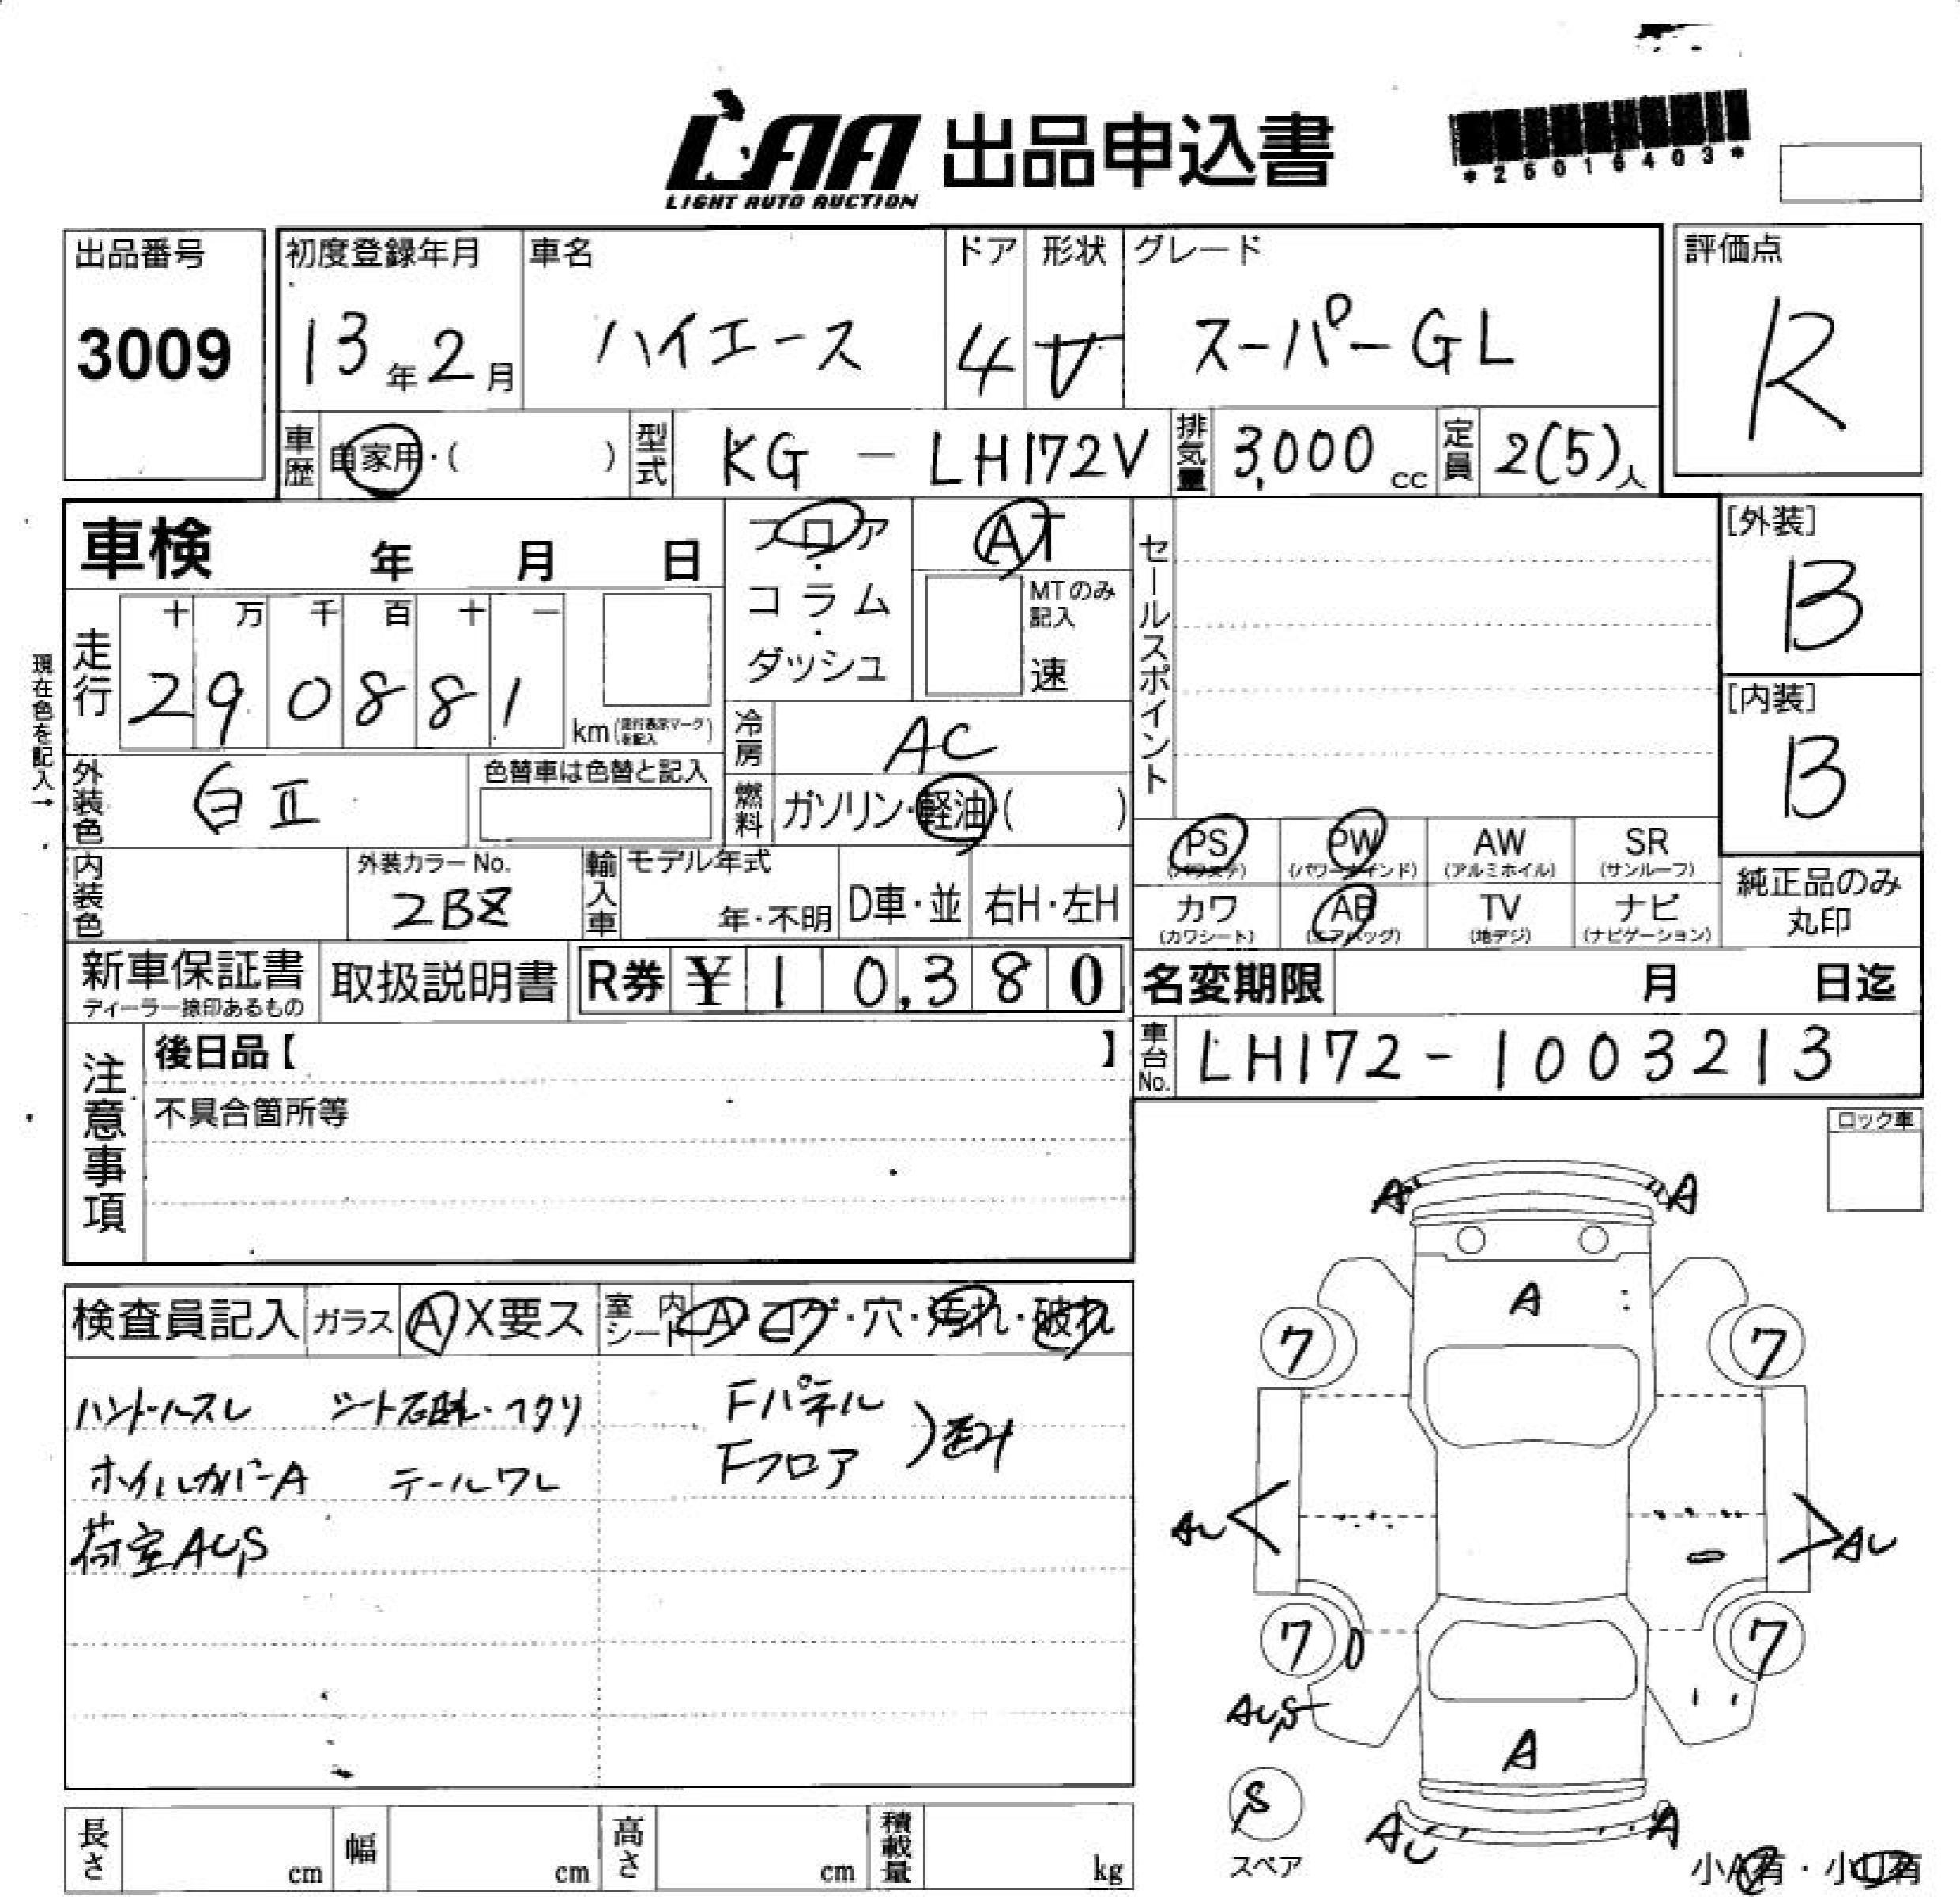 LAA 出品申込書
LIGHT AUTO AUCTION
*26016403*
出品番号
3009
初度登録年月
13年2月
車名
ハイエース
ドア
4
形状
V
グレード
スーパーGL
評価点
R
車歴
自家用・( )
型式
KG - LH172V
排気量
3,000cc
定員
2(5)人
車検 年 月 日
フロア・コラム・ダッシュ
AT
MTのみ記入
速
セールスポイント
[外装]
B
[内装]
B
現在色を記入→
走行
十 万 千 百 十 一
2 9 0 8 8 1
km(走行表示マークを記入)
冷房
AC
外装色
白正
色替車は色替と記入
燃料
ガソリン・軽油・( )
PS AW SR
PW
(パワステ) (パワーウインド) (アルミホイル) (サンルーフ)
内装色
外装カラーNo.
2BZ
輸入車
モデル年式
年・不明
D車・並
右H・左H
カワ AB TV ナビ
(カワシート) (エアバッグ) (地デジ) (ナビゲーション)
純正品のみ
丸印
新車保証書
ディーラー捺印あるもの
取扱説明書
R券 ¥10,380
名変期限 月 日迄
車台No.
LH172-1003213
注意事項
後日品【 】
不具合箇所等
ロック車
検査員記入
ガラス
A X要ス
室内シート
A・コゲ・穴・汚れ・破れ
ハンドルスレ
ホイルカバーA テールワレ
荷室AUS
Fパネル
Fフロア
A A
A
7 7
AU AU
7 7
AUS
A
S
スペア
AU A
小A有・小U有
長さ cm
幅 cm
高さ cm
積載量 kg